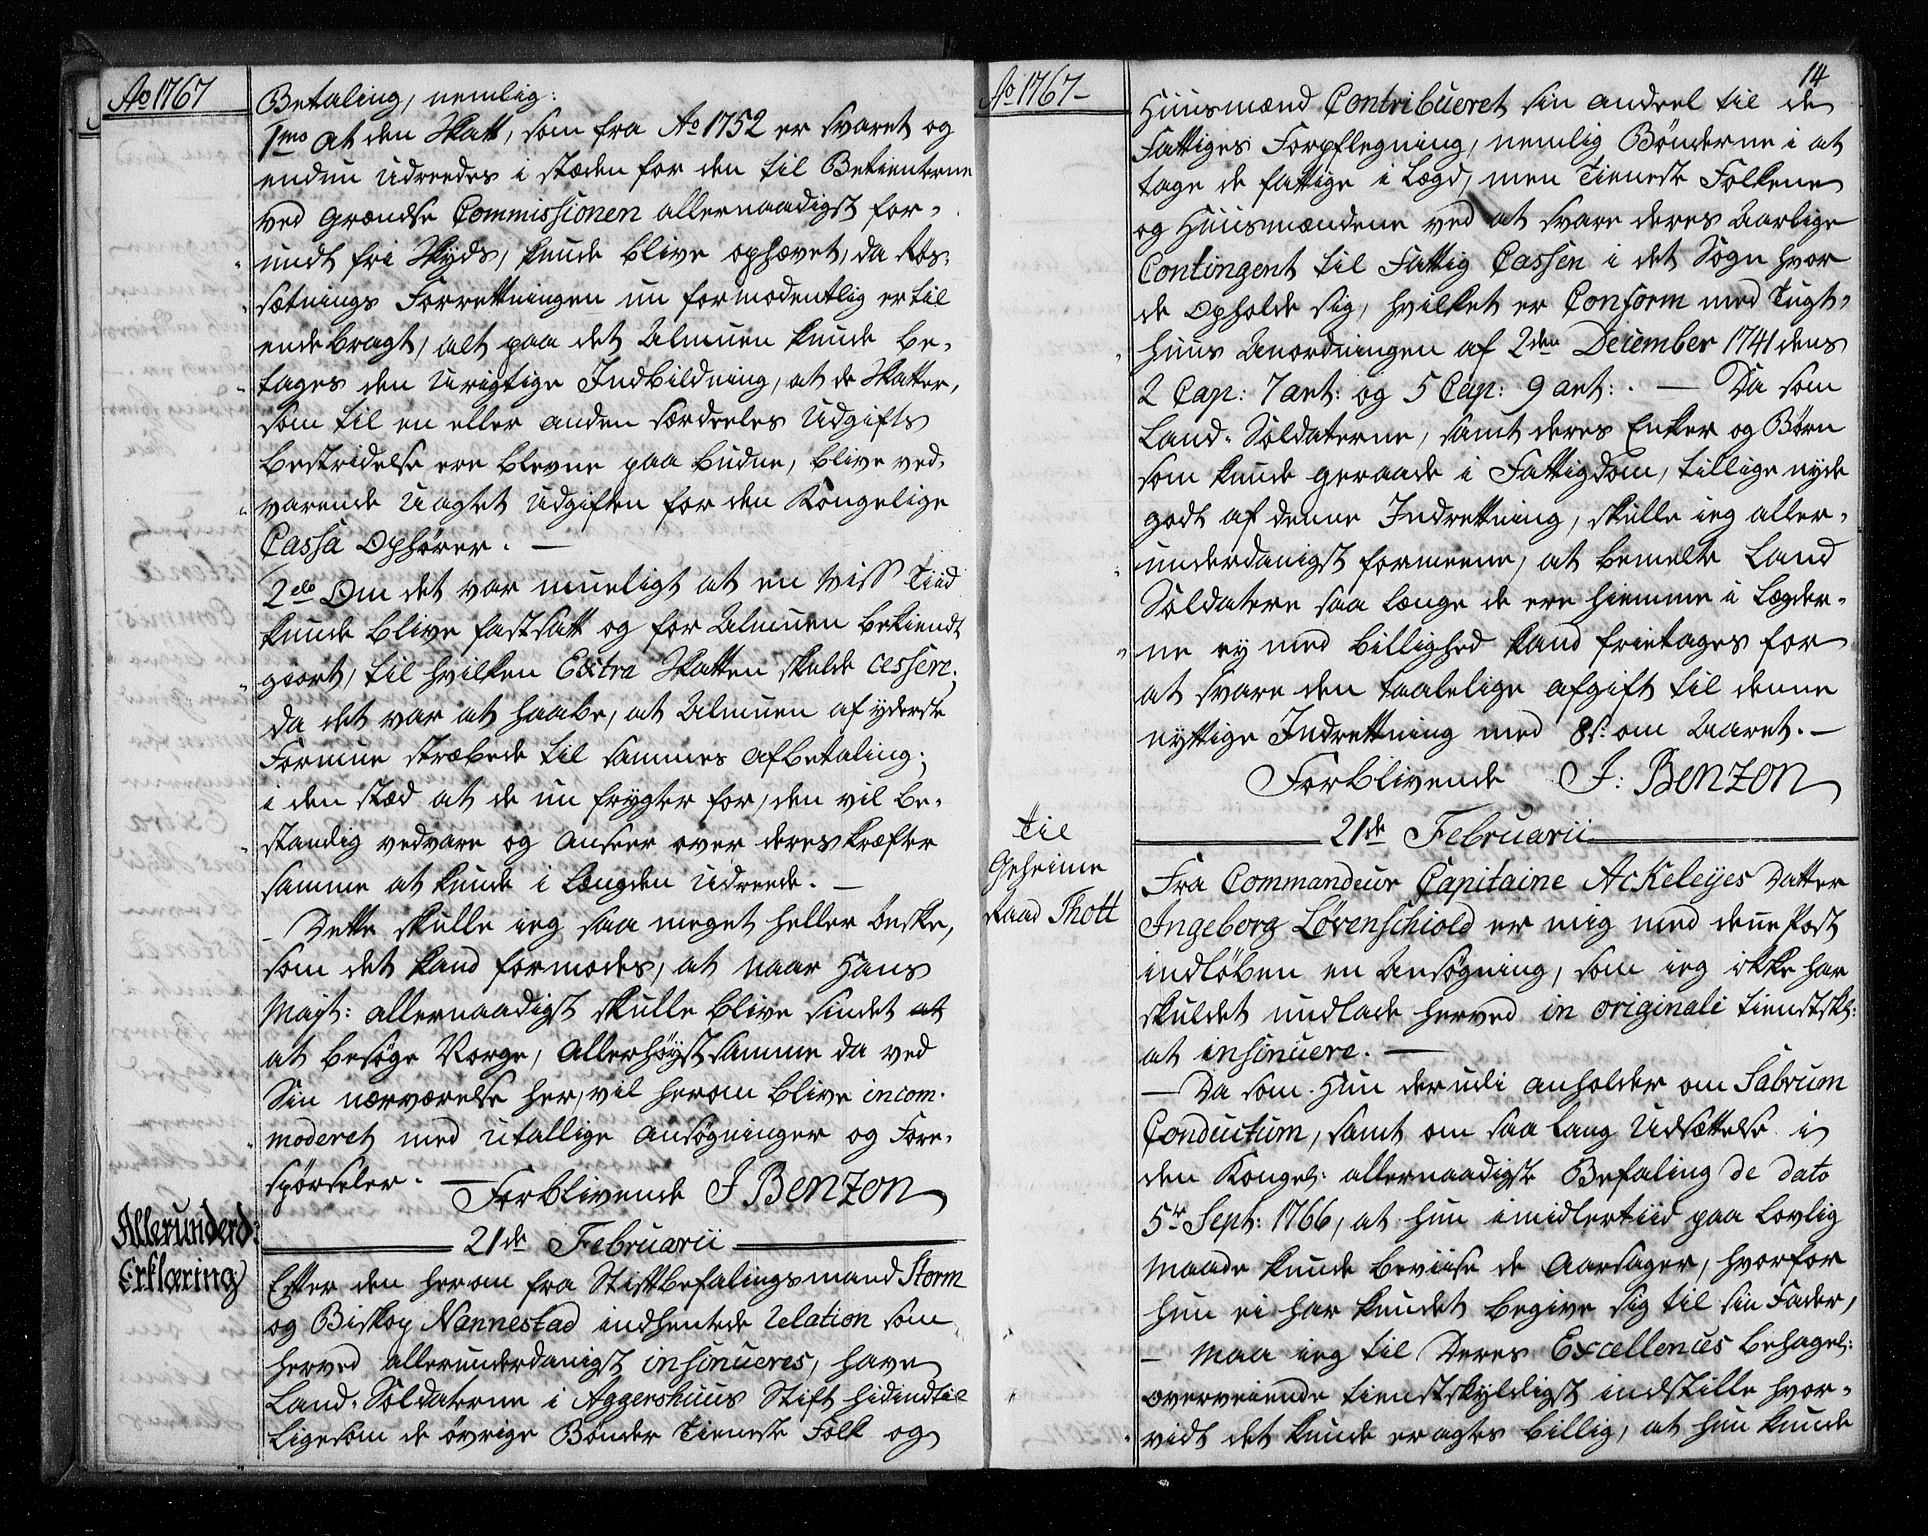 Ao 1767
Betaling, nemlig:
1mo At den Skatt, som fra Ao 1752 er svaret og
endnu udreedes i stæden for den til Betienterne
ved Grændse Commissionen allernaadigst for-
undt fri Skyds, kunde blive ophævet, da Røs-
sætnings Forrettningen nu formodentlig er til
ende bragt, alt paa det Almuen kunde be-
tages den urigtige Indbildning, at de Skatter,
som til en eller anden særdeeles Udgifts
bestridelse ere blevne paabudne, blive ved-
varende uagtet Udgiften for den Kongelige
Cassa Ophører. —
2do Om det var mueligt at en viss Tiid
kunde blive fastsatt og for Almuen bekiendt
giort, til hvilken Extra Skatten skulde cessere,
da det var at haabe, at Almuen af yderste
Formue stræbede til sammes Afbetaling;
i den stæd at de nu frygter for, den vil be-
standig vedvare og Anseer over deres kræfter
samme at kunde i Længden udreede. —
- Dette skulle ieg saa meget heller ønske,
som det kand formodes, at naar Hans
Mayt: allernaadigst skulle blive sindet at
at besøge Norge, Allerhøystsamme da ved
Sin nærværelse her, vil herom blive incom-
moderet med utallige Ansøgninger og Fore-
spørseler. — Forblivende J Benzon
21de Februarii
Allerunderd:
Erklæring
Efter den herom fra Stiftbefalingsmand Storm
og Biskop Nannestad indhentede Relation som
herved allerunderdanigst insinueres, have
Land-Soldaterne i Aggershuus Stift hidindtil
ligesom de øvrige Bønder Tieneste Folk og
Ao 1767-
14
Huusmænd Contribueret sin andeel til de
Fattiges Forpflegning, nemlig Bønderne i at
tage de fattige i Lægd, men Tieneste Folkene
og Huusmændene ved at svare deres Aarlige
Contingent til Fattig Cassen i det Sogn hvor
de Opholde sig, hvilket er Conform med Tugt-
huus Anordningen af 2den December 1741 dens
2 Cap: 7 art: og 5 Cap: 9 art: . — Da som
Land-Soldaterne, samt deres Enker og Børn
som kunde geraade i Fattigdom, tillige nyde
godt af denne Indrettning, skulle ieg aller-
underdanigst formeene, at bemelte Land
Soldatere saa længe de ere hiemme i Lægder-
ne ey med billighed kand frietages for
at svare den taalelige Afgift til denne
nyttige Indrettning med 8s: om Aaret. —
Forblivende J: Benzon
21de Februarii
Til
Geheime
Raad Thott
Fra Commandeur Capitaine Ackeleyes Datter
Ingeborg Lövenschiold er mig med denne Post
indløben en Ansøgning, som ieg ikke har
skuldet undlade herved in originali tienstskl:
at insinuere. —
— Da som Hun derudi anholder om Salvum
Conductum, samt om saa lang Udsættelse i
den Kongel: allernaadigste Befaling de dato
5te Sept: 1766, at hun imidlertiid paa Lovlig
Maade kunde beviise de Aarsager, hvorfor
hun ei har kundet begive sig til sin Fader,
— Maa ieg til Deres Excellences behagel:
overveiende tienstskyldigst indstille hvor-
vidt det kunde eragtes billig, at hun kunde